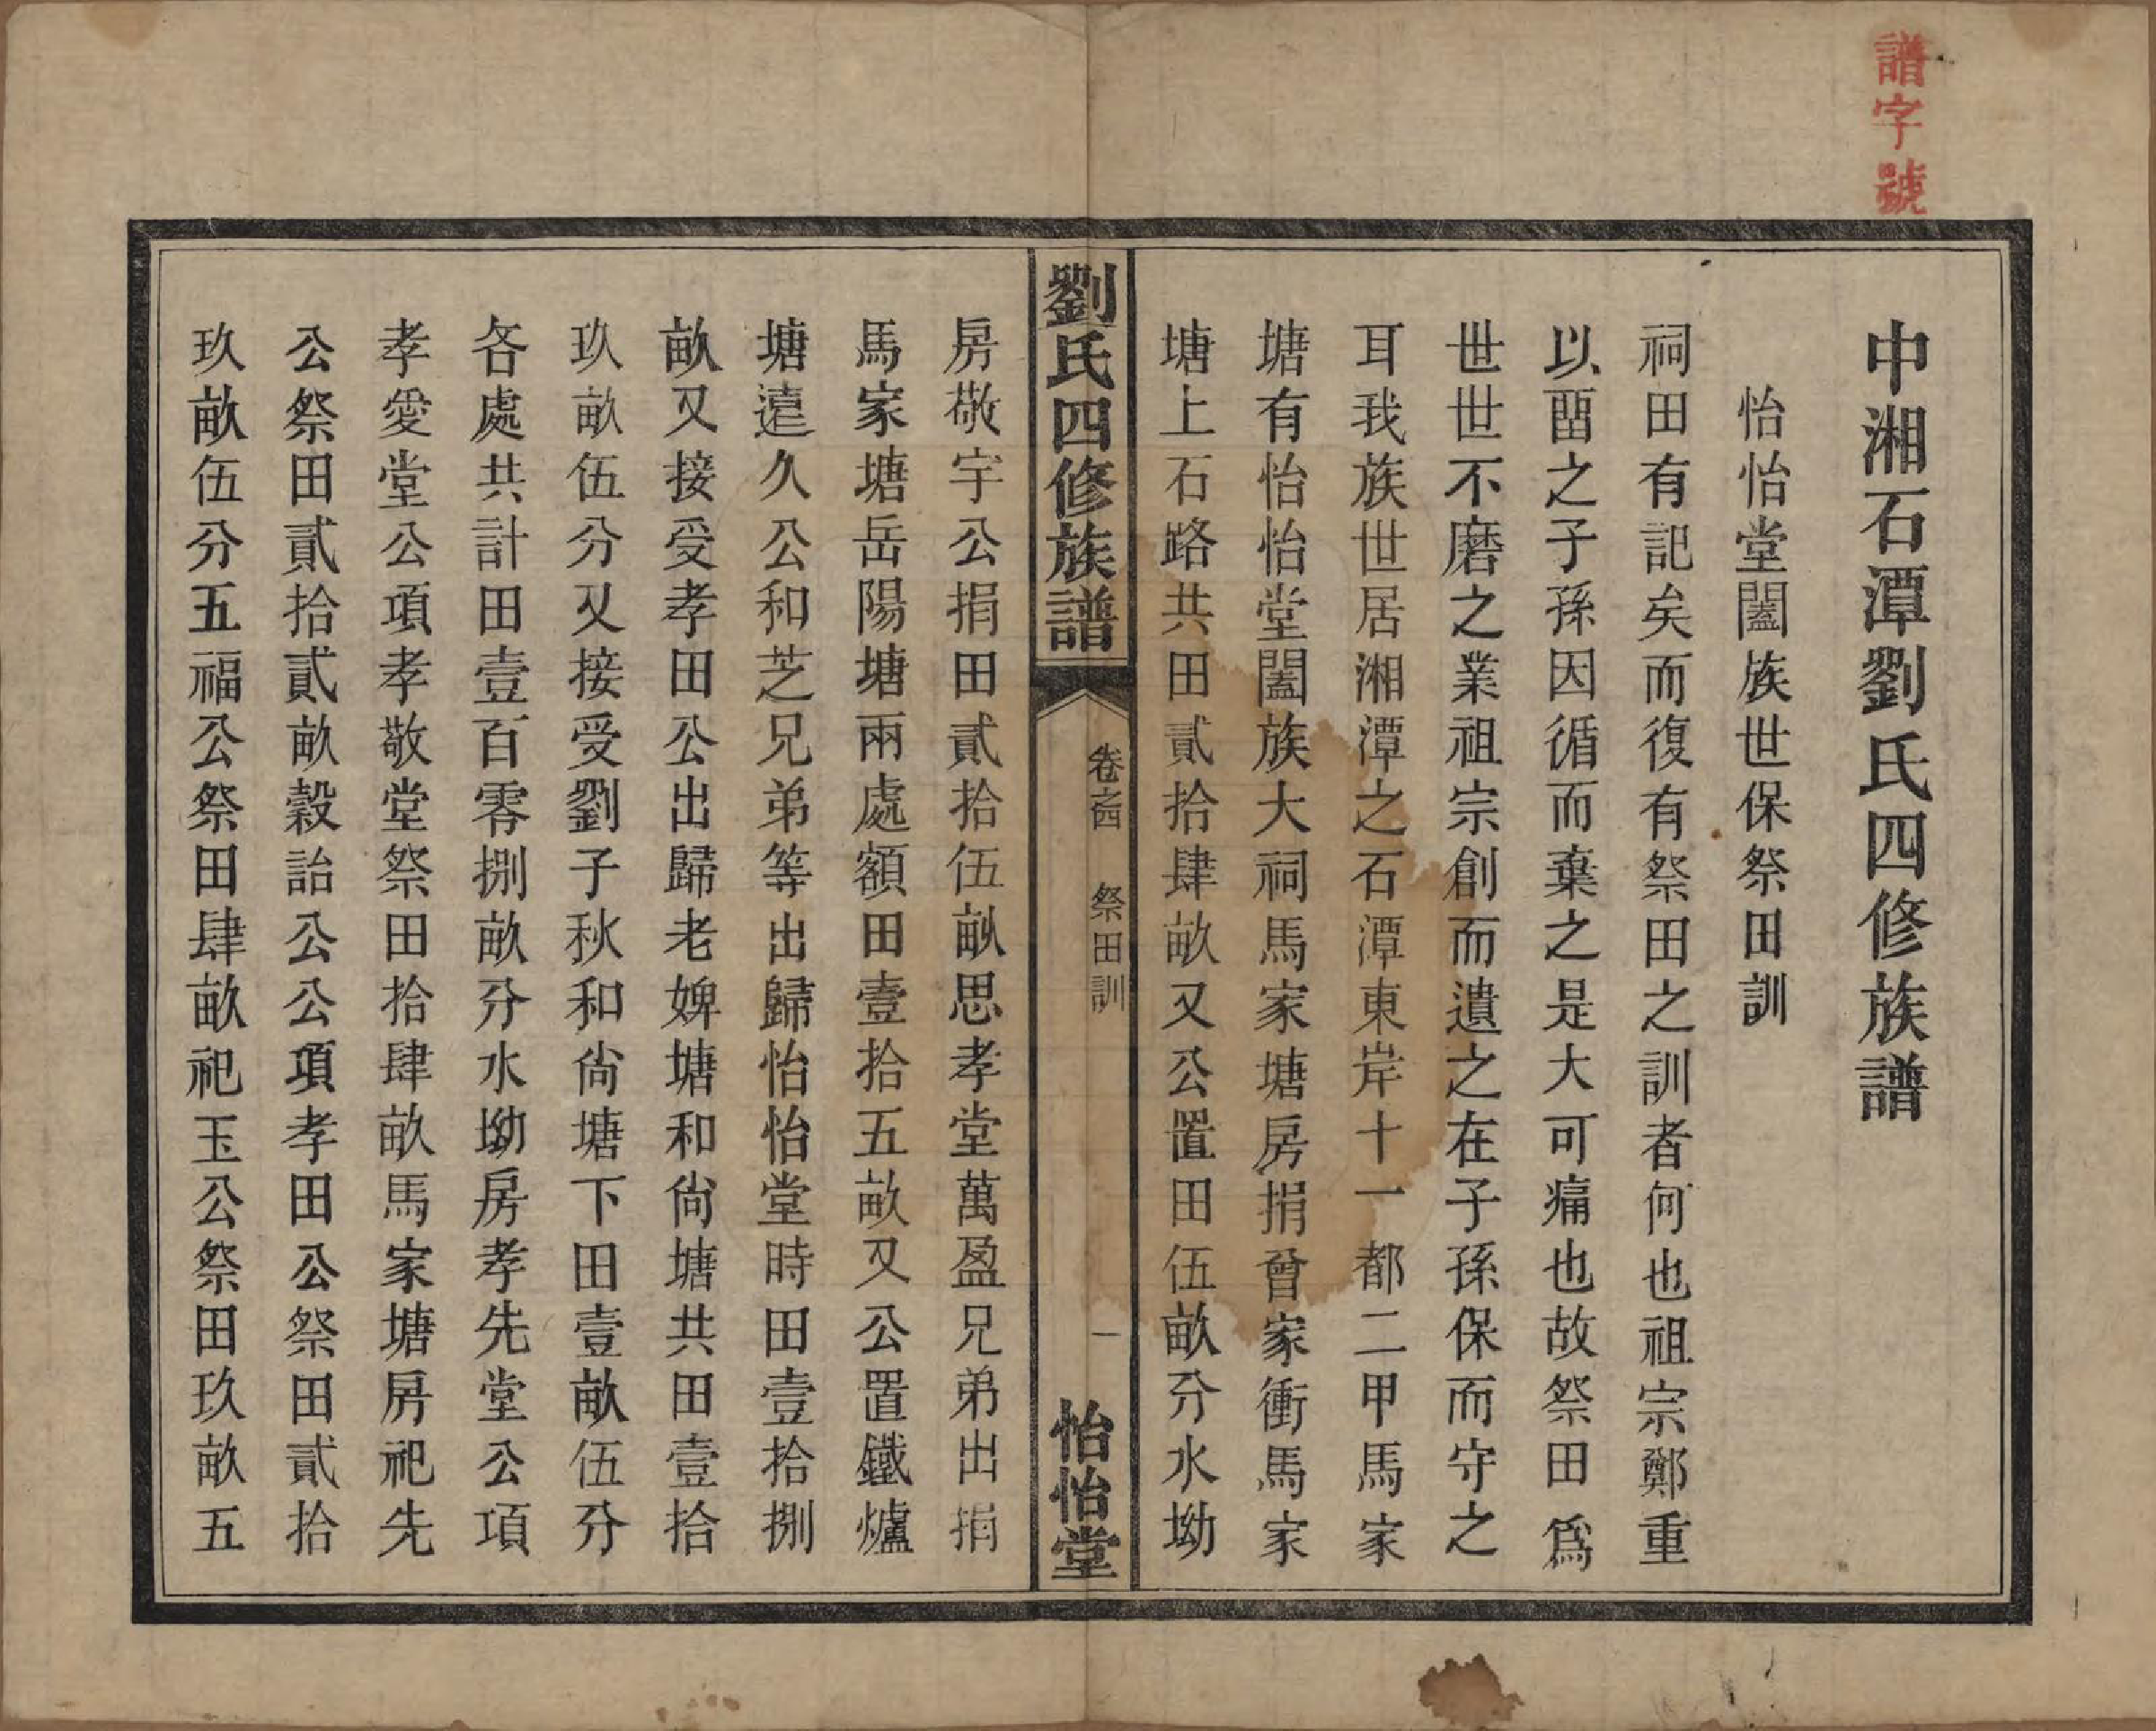 譜字號
中湘石潭劉氏四修族譜
怡怡堂闔族世保祭田訓
祠田有記矣而復有祭田之訓者何也祖宗鄭重
以畱之子孫因循而棄之是大可痛也故祭田爲
世世不磨之業祖宗創而遺之在子孫保而守之
耳我族世居湘潭之石潭東岸十一都二甲馬家
塘有怡怡堂闔族大祠馬家塘房捐曾家衝馬家
塘上石路共田貳拾肆畝又公置田伍畝分水坳
劉氏四修族譜
卷之四
祭田訓
一
怡怡堂
房敬宇公捐田貳拾伍畝思孝堂萬盈兄弟出捐
馬家塘岳陽塘兩處額田壹拾五畝又公置鐵爐
塘遠久公和芝兄弟等出歸怡怡堂時田壹拾捌
畝又接受孝田公出歸老婢塘和尙塘共田壹拾
玖畝伍分又接受劉子秋和尙塘下田壹畝伍分
各處共計田壹百零捌畝分水坳房孝先堂公項
孝愛堂公項孝敬堂祭田拾肆畝馬家塘房祀先
公祭田貳拾貳畝穀詒公公項孝田公祭田貳拾
玖畝伍分五福公祭田肆畝祀玉公祭田玖畝五